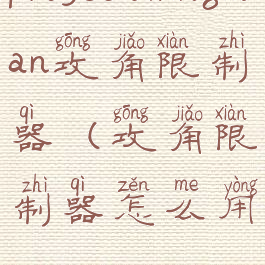 gōng jiǎo xiàn zhì
an攻角限制
qì gōng jiǎo xiàn
器(攻角限
zhì qì zěn me yòng
制器怎么用